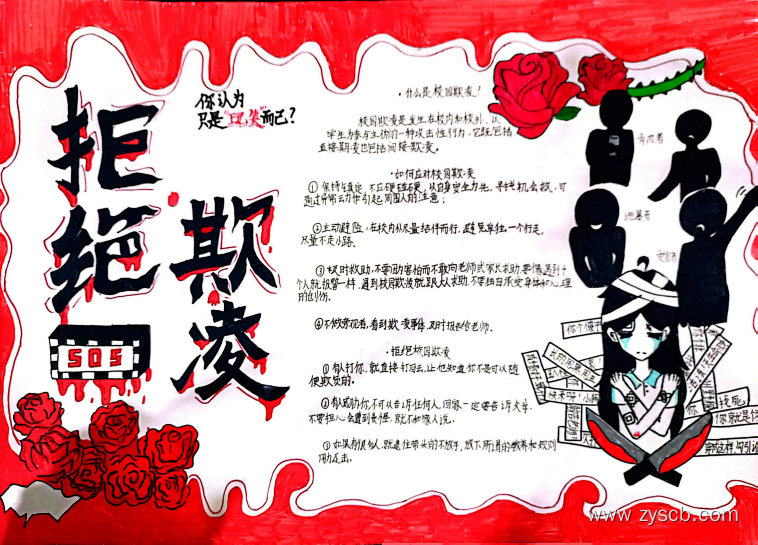 拒绝
欺凌
SOS
你认为
只是"玩笑"而已?
·什么是校园欺凌?
校园欺凌是发生在校内和校外,以
学生为参与主体的一种攻击性行为,它既包括
直接欺凌也包括间接欺凌。
·如何应对校园欺凌
①保持镇定,不应硬碰硬,以自身安全为先,寻找机会救,可
通过异常动作引起周围人的注意;
②主动避险,在校内外尽量结伴而行,避免单独一个行走,
尽量不走小路.
③及时救助,不要因为害怕而不敢向老师或家长求助,要像遇到
个人就报警一样,遇到校园欺凌就跟大人求助,不要独自承受身体和心理
的创伤.
④不做旁观者,看到欺凌事情,及时报告给老师.
·拒绝校园欺凌
①有人打你,就直接打回去,让他知道你不是可以随
便欺负的.
②有威胁你,不可以告诉任何人,回家一定要告诉大人.
不要担心会遭到责怪,就不和家人说.
③如果有很多人,就逮住带头的不放手,放下所谓的教养和规则
用力还击.
旁观者
施暴者
受害者
你个傻子
快来呀!小胖
你
www.zyscb.com